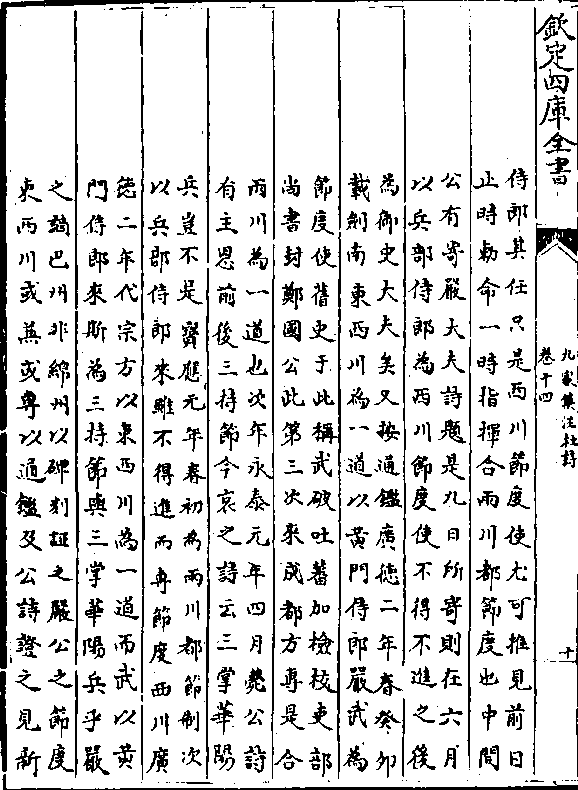 欽定四庫全書
九家集注杜詩
卷十四
十
侍郎其任只是西川節度使尤可推見前日
止時勅命一時指揮合兩川都節度也中間
公有寄嚴大夫詩題是九日所寄則在六月
以兵部侍郎為西川節度使不得不進之後
為御史大夫矣又按通鑑廣徳二年春癸卯
載劍南東西川為一道以黄門侍郎嚴武為
節度使舊史于此稱武破吐蕃加檢校吏部
尚書封鄭國公此第三次來成都方專是合
兩川為一道也次年永泰元年四月薨公詩
有主恩前後三持節今哀之詩云三掌華陽
兵豈不是寳應元年春初為兩川都節制次
以兵部侍郎來雖不得進而專節度西川廣
徳二年代宗方以東西川為一道而武以黄
門侍郎來斯為三持節與三掌華陽兵乎嚴
之謫巴州非綿州以碑刻証之嚴公之節度
東西川或兼或專以通鑑及公詩證之見新